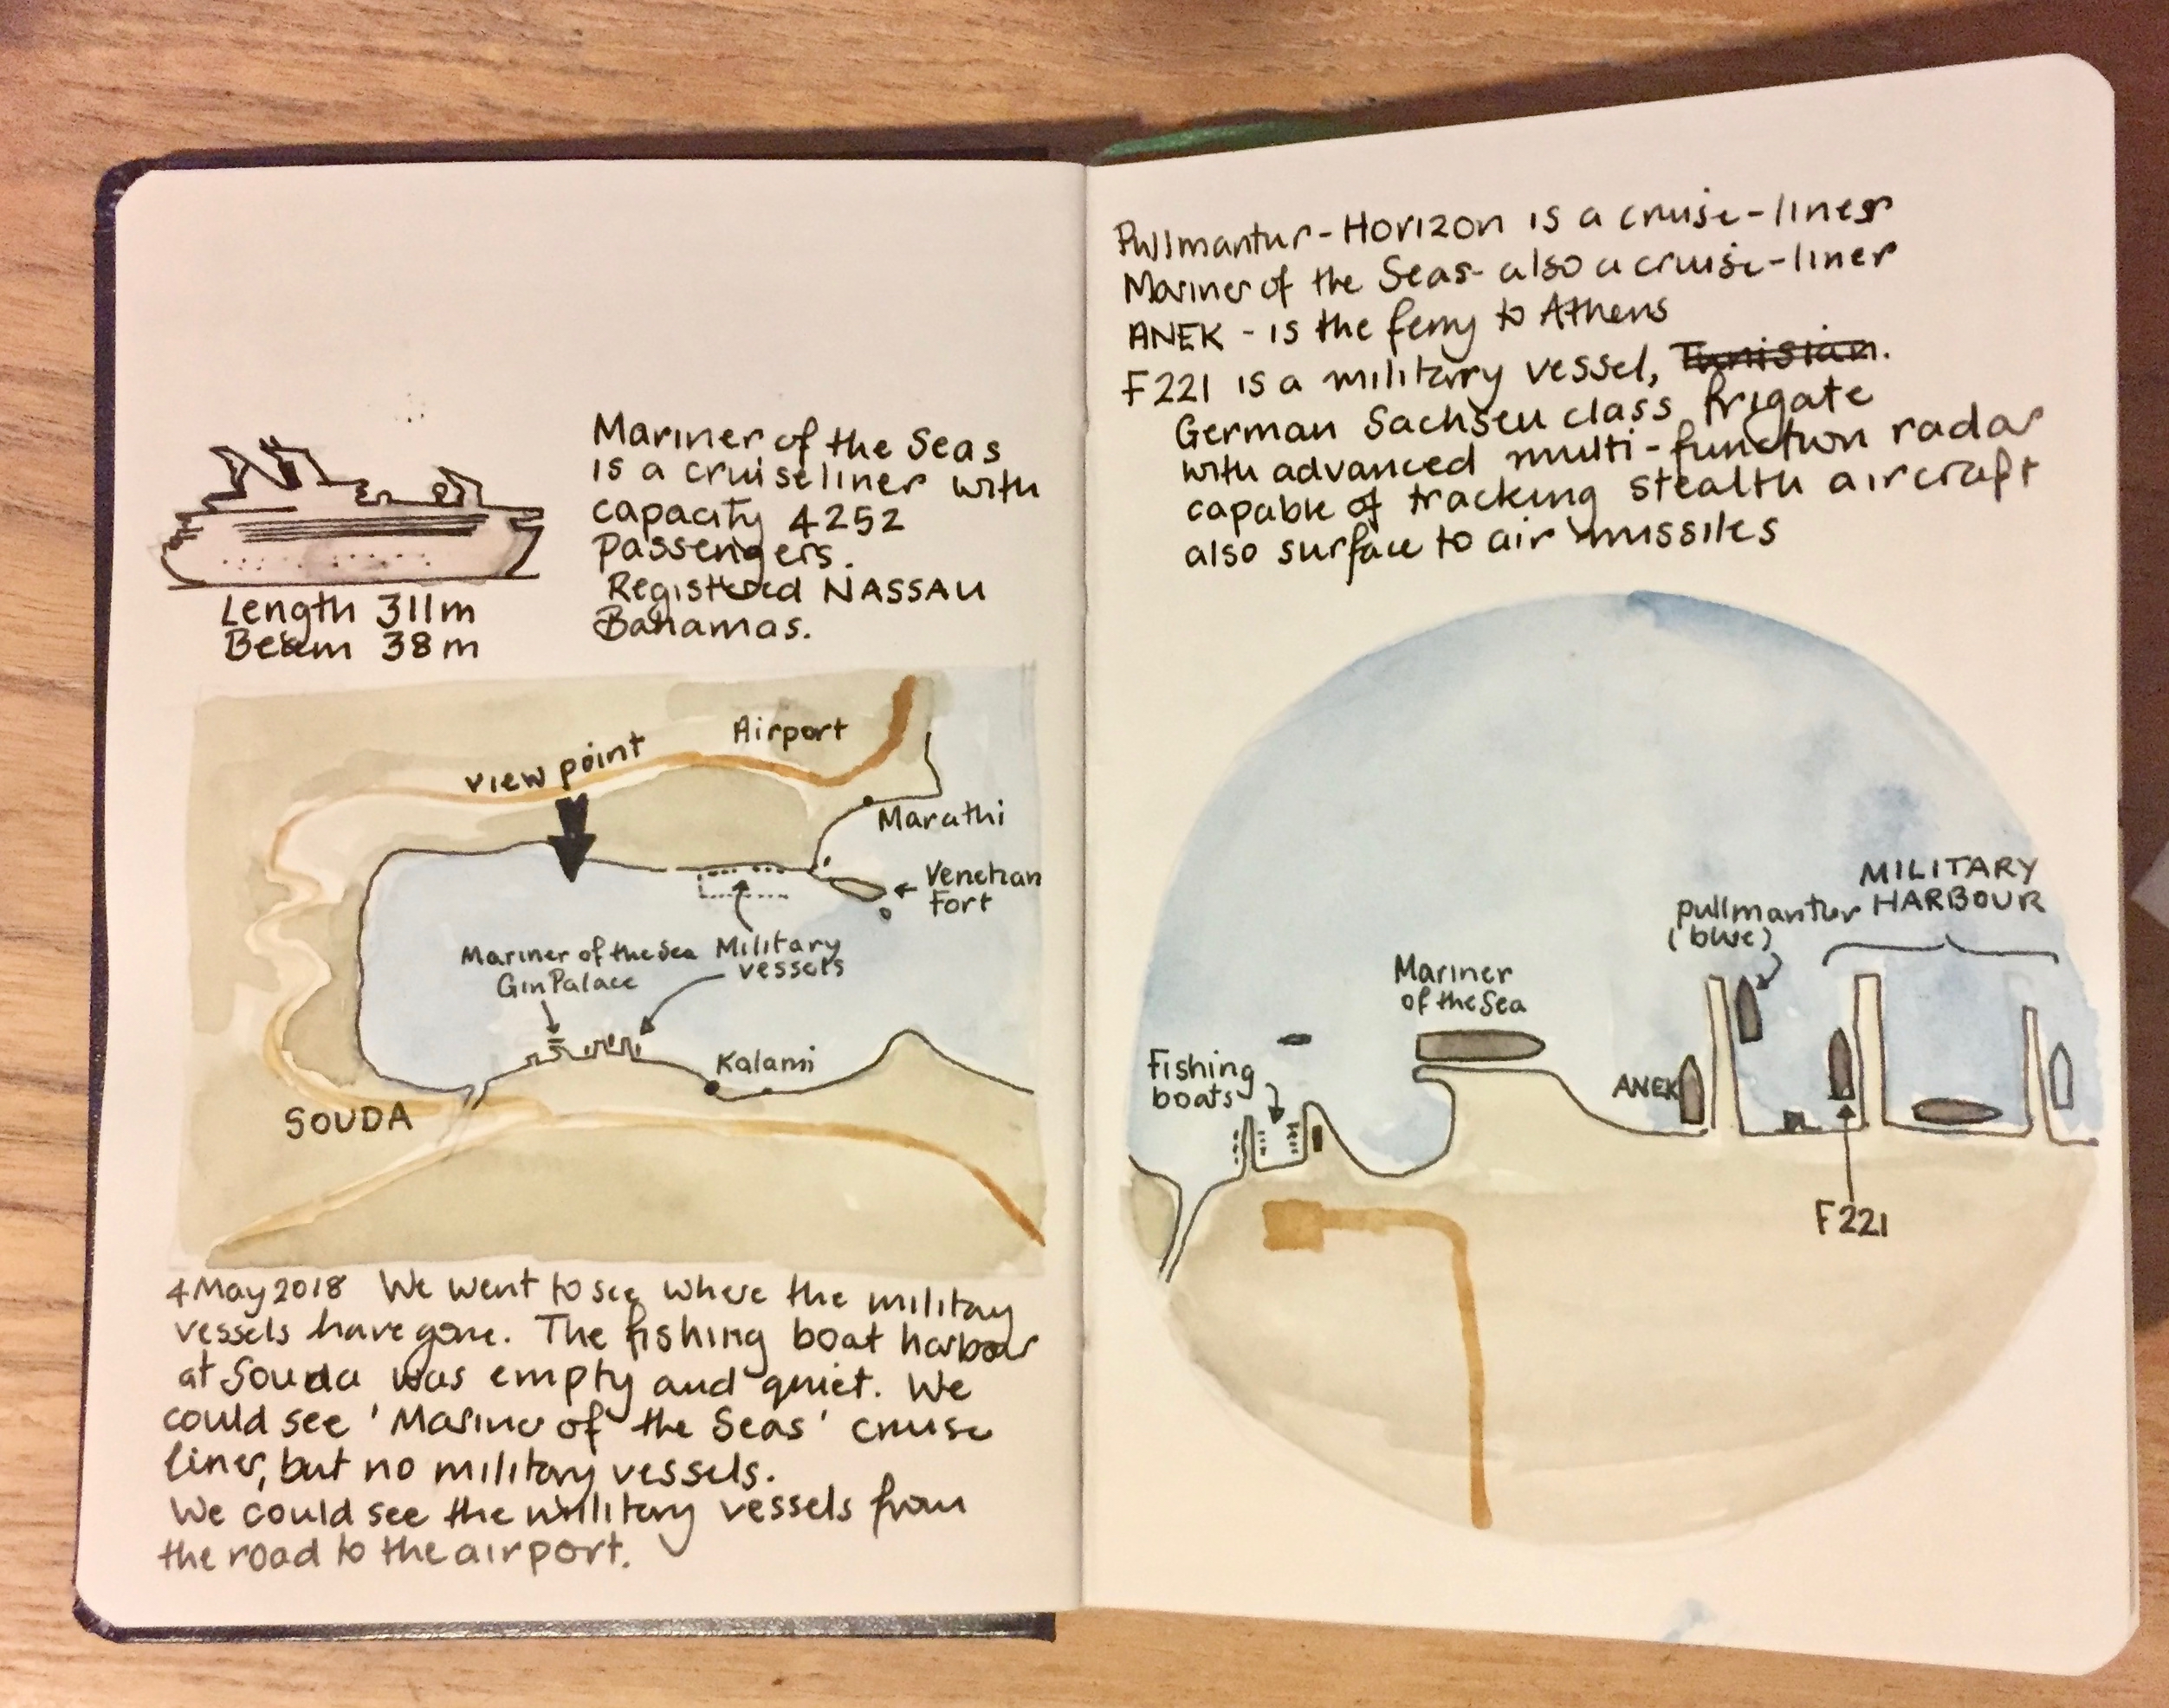 Mariner of the Seas
is a cruiseliner with
capacity 4252
passengers.
Registered NASSAU
Bahamas.
Length 311m
Beam 38m
Airport
view point
Marathi
Venetian
Fort
Mariner of the Sea
Gin Palace
Military
vessels
Kalami
SOUDA
4 May 2018 We went to see where the military
vessels have gone. The fishing boat harbour
at Souda was empty and quiet. We
could see 'Mariner of the Seas' cruise
liner, but no military vessels.
We could see the military vessels from
the road to the airport.
Pullmantur-Horizon is a cruise-liner
Mariner of the Seas- also a cruise-liner
ANEK - is the ferry to Athens
F221 is a military vessel, Tunisian.
German Sachsen class frigate
with advanced multi-function radar
capable of tracking stealth aircraft
also surface to air missiles
MILITARY
HARBOUR
pullmantur
(blue)
Mariner
of the Sea
Fishing
boats
ANEK
F221